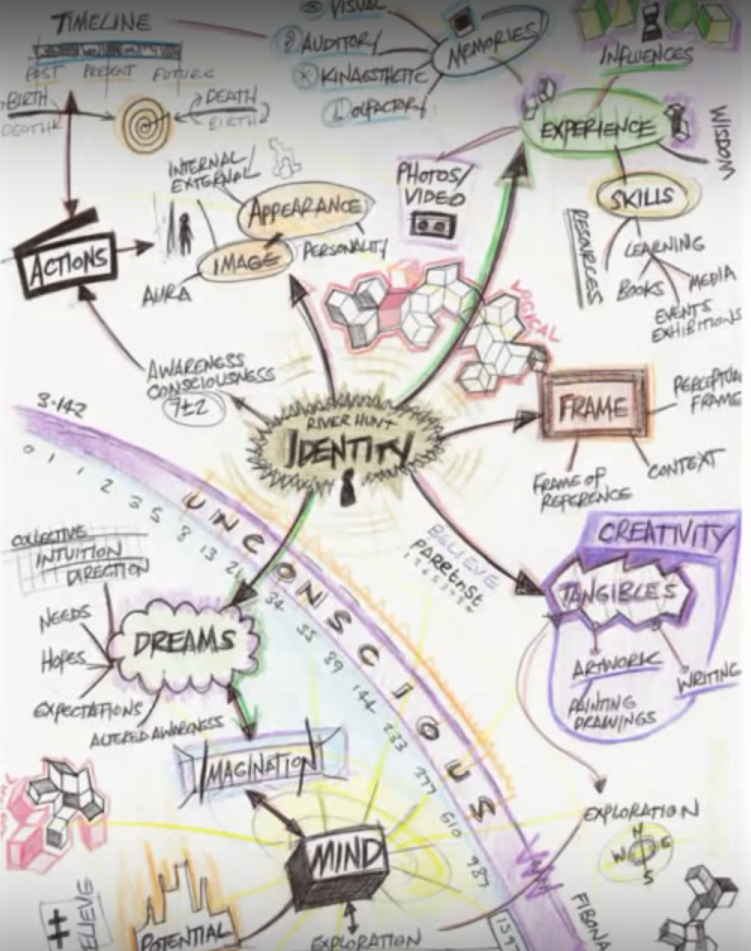 TIMELINE
PAST PRESENT FUTURE
BIRTH
DEATH
DEATH
BIRTH
VISUAL
AUDITORY
KINAESTHETIC
OLFACTORY
MEMORIES
INFLUENCES
EXPERIENCE
WISDOM
PHOTOS/
VIDEO
SKILLS
RESOURCES
LEARNING
BOOKS
MEDIA
EVENTS
EXHIBITIONS
INTERNAL/
EXTERNAL
APPEARANCE
IMAGE
PERSONALITY
AURA
ACTIONS
LOGICAL
AWARENESS
CONSCIOUSNESS
7±2
RIVER HUNT
IDENTITY
FRAME
PERCEPTUAL
FRAME
CONTEXT
FRAME OF
REFERENCE
3.142
0 1 1 2 3 5 8 13 21 34 55 89 144 233 377 610 987
UNCONSCIOUS
BELIEVE
CREATIVITY
TANGIBLES
ARTWORK
WRITING
PAINTING
DRAWINGS
COLLECTIVE
INTUITION
DIRECTION
NEEDS
HOPES
EXPECTATIONS
ALTERED AWARENESS
DREAMS
IMAGINATION
MIND
EXPLORATION
N
W E
S
POTENTIAL
EXPLORATION